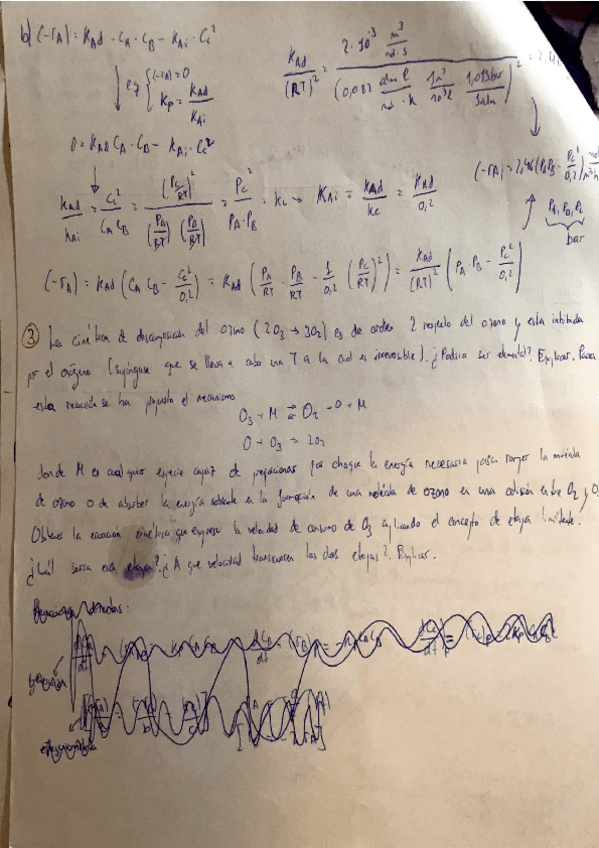 b) (-rA) = KAd · CA · CB - KAi · Cc²
eq { (-rA) = 0
Kp = KAd / KAi
KAd / (RT)² = 2·10⁻³ m³/mol·s / (0,082 atm·l/mol·K · 1m³/10³l · 1,013bar/1atm)²
0 = KAd CA · CB - KAi · Cc²
(-rA) = 2,46 (PA PB - Pc²/0,2)
KAd/KAi = Cc²/(CA CB) = (Pc/RT)² / ((PA/RT) (PB/RT)) = Pc²/(PA·PB) = Kc → KAi = KAd/Kc = KAd/0,2
PA, PB, Pc
bar
(-rA) = KAd (CA CB - Cc²/0,2) = KAd (PA/RT · PB/RT - 1/0,2 (Pc/RT)²) = KAd/(RT)² (PA · PB - Pc²/0,2)
③ La cinética de descomposición del ozono (2O3 → 3O2) es de orden 2 respecto del ozono y esta inhibida
por el oxígeno (supóngase que se lleva a cabo una T a la cual es irreversible). ¿Podria ser elemental? Explicar. Para
esta reacción se ha propuesto el mecanismo
O3 + M ⇄ O2 + O + M
O + O3 → 2O2
donde M es cualquier especie capaz de proporcionar por choque la energía necesaria para romper la molécula
de ozono o de absorber la energía sobrante en la formación de una molécula de ozono en una colisión entre O2 y O.
Obtener la ecuación cinética que exprese la velocidad de consumo de O3 aplicando el concepto de etapa limitante.
¿Cuál seria esa etapa? ¿A que velocidad transcurren las dos etapas? Explicar.